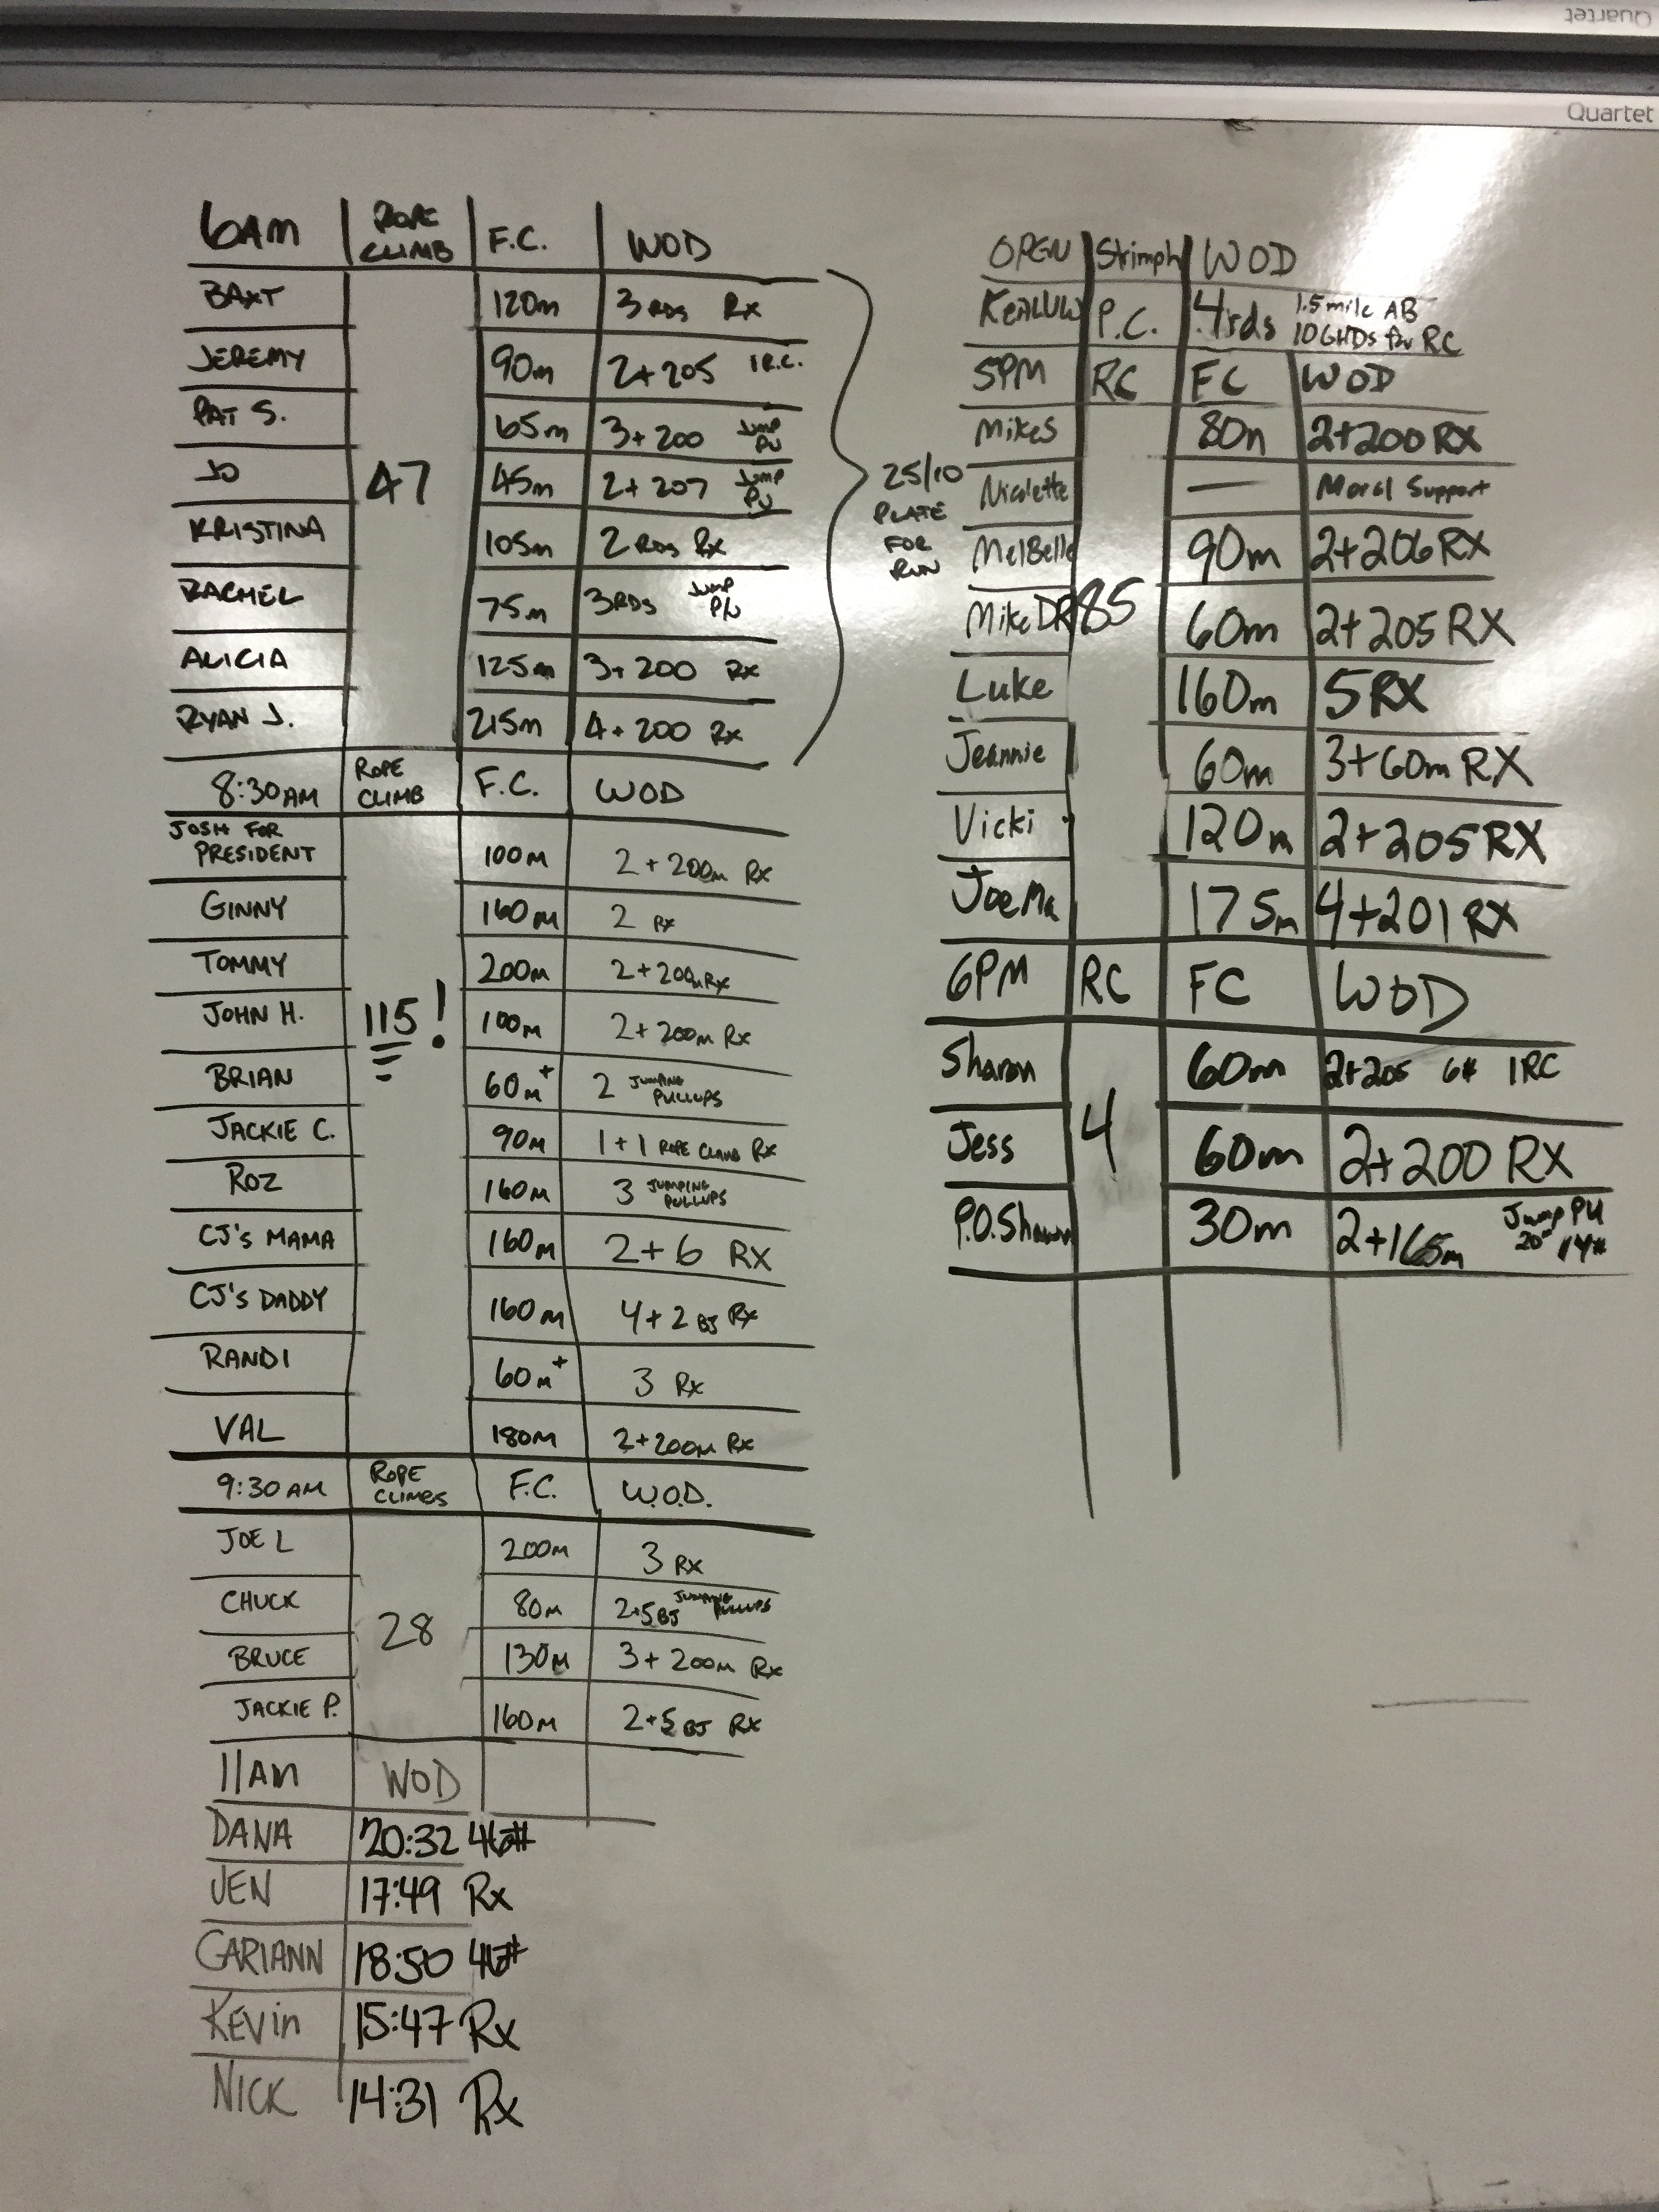 Quartet
Quartet
6AM ROPE CLIMB F.C. WOD
BAXT 120m 3 RDS Rx
JEREMY 90m 2+205 1 R.C.
PAT S. 65m 3+200 Jump PU
JO 45m 2+207 Jump PU
47
KRISTINA 105m 2 RDS Rx
RACHEL 75m 3RDS JUMP P/U
ALICIA 125m 3+200 Rx
RYAN J. 215m 4+200 Rx
25/10
PLATE
FOR
RUN
8:30AM ROPE CLIMB F.C. WOD
JOSH FOR PRESIDENT 100M 2+200m Rx
GINNY 160M 2 Rx
TOMMY 200M 2+200M Rx
JOHN H. 115! 100M 2+200M Rx
BRIAN 60M+ 2 JUMPING PULLUPS
JACKIE C. 90M 1+1 ROPE CLIMB Rx
ROZ 160M 3 JUMPING PULLUPS
CJ's MAMA 160M 2+6 RX
CJ's DADDY 160M 4+2 BJ Rx
RANDI 60M+ 3 Rx
VAL 180M 2+200M Rx
9:30AM ROPE CLIMBS F.C. W.O.D.
JOE L 200M 3 RX
CHUCK 80M 2+5BJ JUMPING PULLUPS
28
BRUCE 130M 3+200M Rx
JACKIE P. 160M 2+5 BJ Rx
11AM WOD
DANA 20:32 46#
JEN 17:49 Rx
GARIANN 18:50 46#
KEVin 15:47 Rx
NICK 14:31 Rx
OPEN Strimph WOD
P.C. 4rds 1.5 mile AB
10 GHDs for RC
5PM RC FC WOD
MikeS 80m 2+200 RX
Nicolette — Moral Support
MelBelle 90m 2+206 RX
MikeDR 85 60m 2+205 RX
Luke 160m 5 RX
Jeannie 60m 3+60m RX
Vicki 120m 2+205 RX
JoeMa 175m 4+201 RX
6PM RC FC WOD
Sharon 60m 2+205 6# 1RC
Jess 4 60m 2+200 RX
P.O.Shawn 30m 2+165m Jump PU
20" 14#